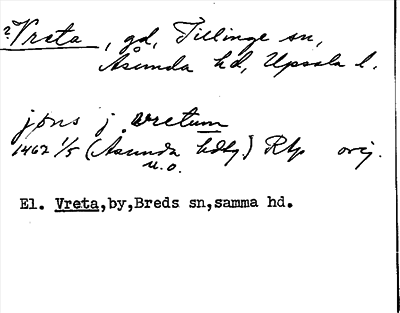 ?Vreta, gd, Tillinge sn,
Åsunda hd, Uppsala l.
jpns j vretum
1462 1/5 (Åsunda hdtg) Rtp orig.
u.o.
El. Vreta,by,Breds sn,samma hd.